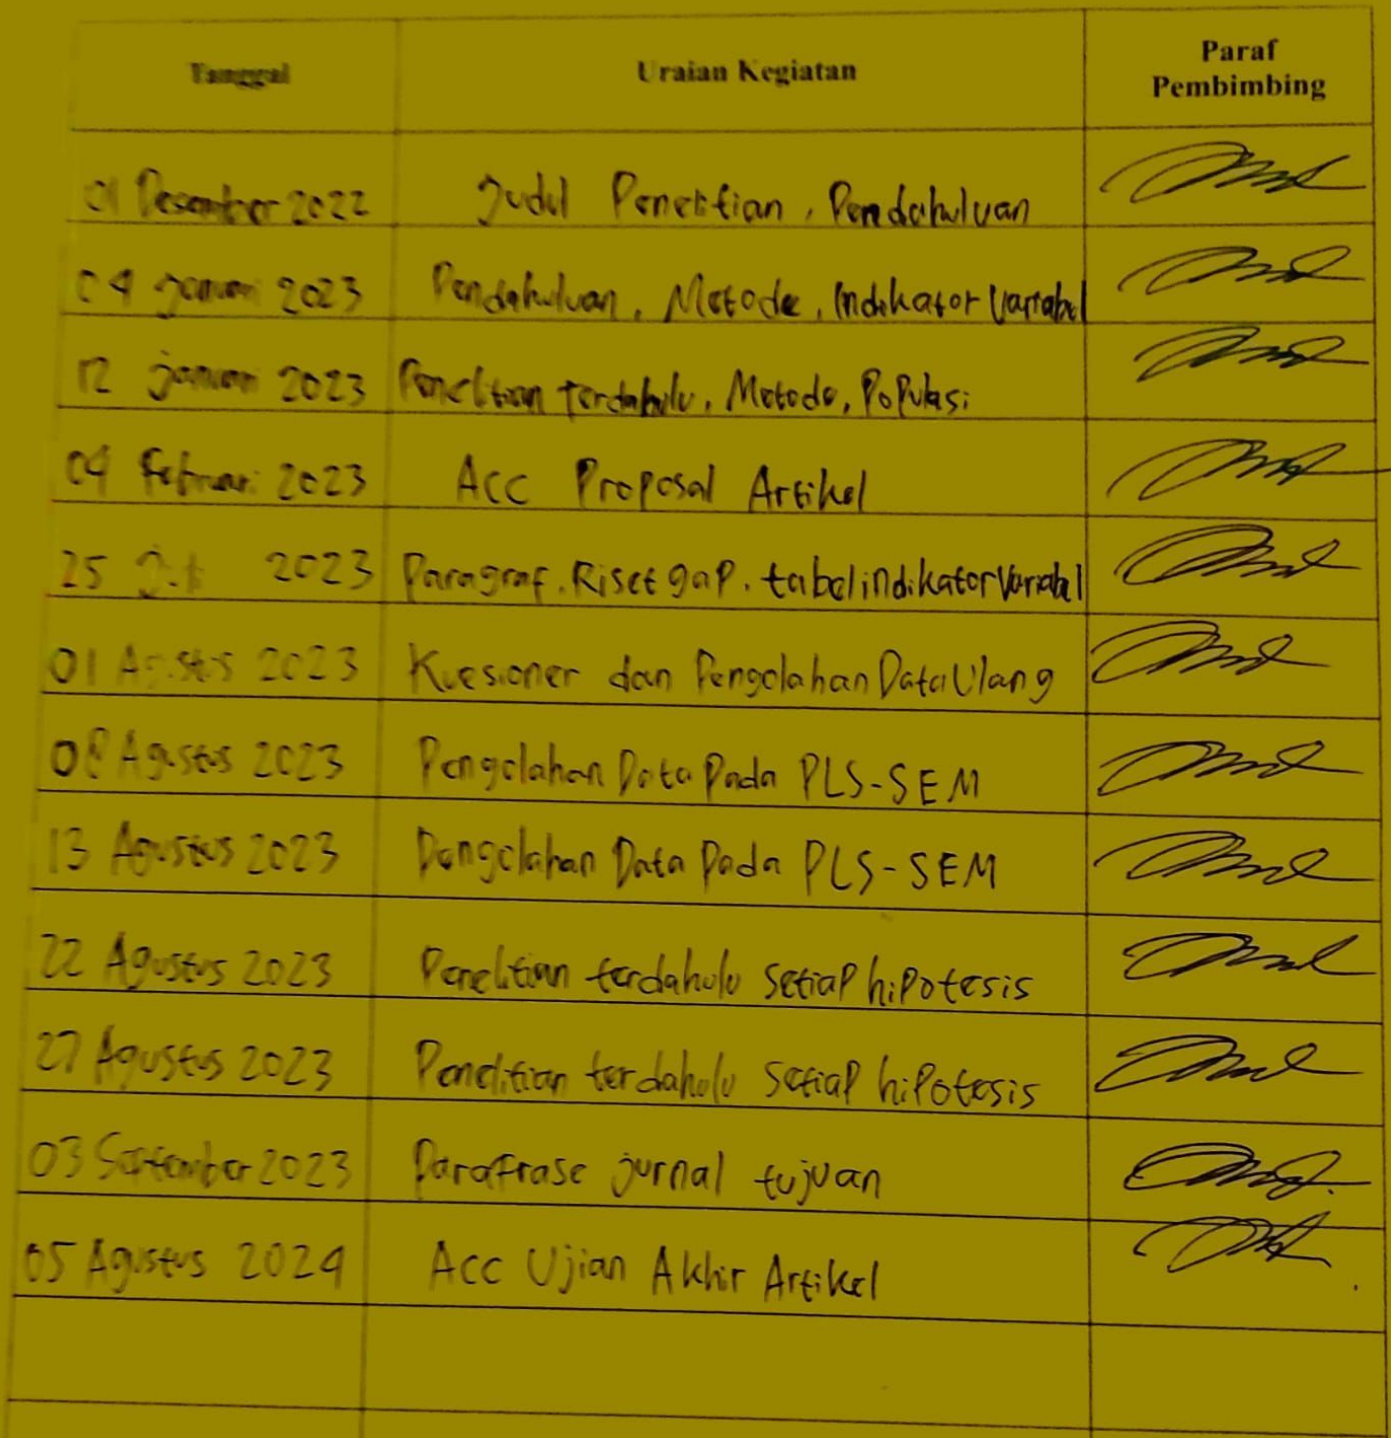 Tanggal Uraian Kegiatan Paraf
Pembimbing
01 Desember 2022 Judul Penelitian, Pendahuluan
04 Januari 2023 Pendahuluan, Metode, Indikator Variabel
12 januari 2023 Penelitian terdahulu, Metode, Populasi
04 Februari 2023 Acc Proposal Artikel
25 2023 Paragraf. Riset gap. tabel indikator Variabel
01 Agustus 2023 Kuesioner dan Pengolahan Data Ulang
08 Agustus 2023 Pengolahan Data Pada PLS-SEM
13 Agustus 2023 Pengolahan Data Pada PLS-SEM
22 Agustus 2023 Penelitian terdahulu setiap hipotesis
27 Agustus 2023 Penelitian terdahulu setiap hipotesis
03 September 2023 Parafrase jurnal tujuan
05 Agustus 2024 Acc Ujian Akhir Artikel